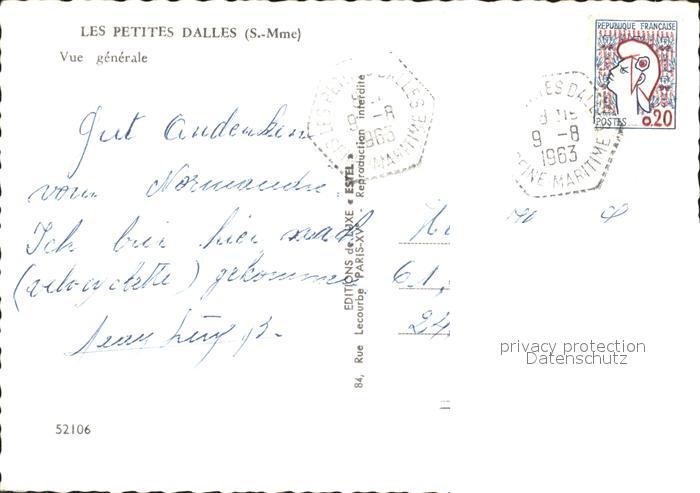 LES PETITES DALLES (S.-Mme)
Vue générale
Gut Andenken
von Normandie
Ich bin hier
(velocyclette) gekommen
52106
EDITIONS de LUXE « ESTEL »
84, Rue Lecourbe PARIS-XVe - Reproduction interdite
LES PETITES DALLES
9 -8
1963
SEINE MARITIME
REPUBLIQUE FRANÇAISE
POSTES 0.20
9 -8
1963
SEINE MARITIME
61,
24
privacy protection
Datenschutz